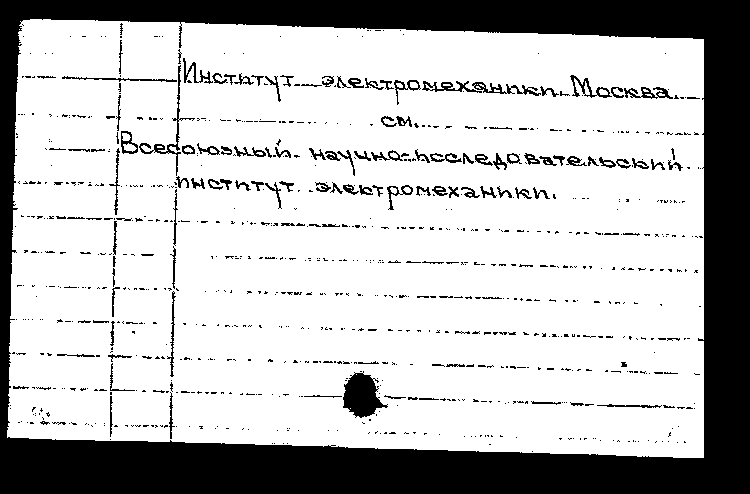 Институт электромеханики. Москва.
см.
Всесоюзный научно-исследовательский
институт электромеханики.